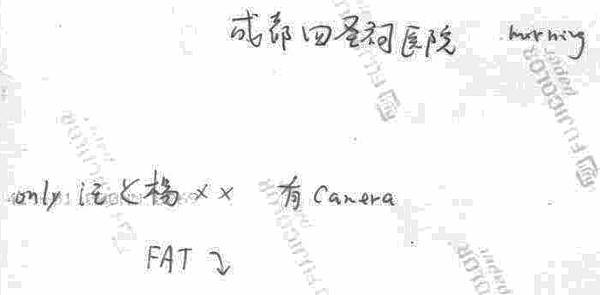 成都四圣祠医院 morning
FUJICOLOR
paper
only と杨×× 有 Camera
FAT ↘